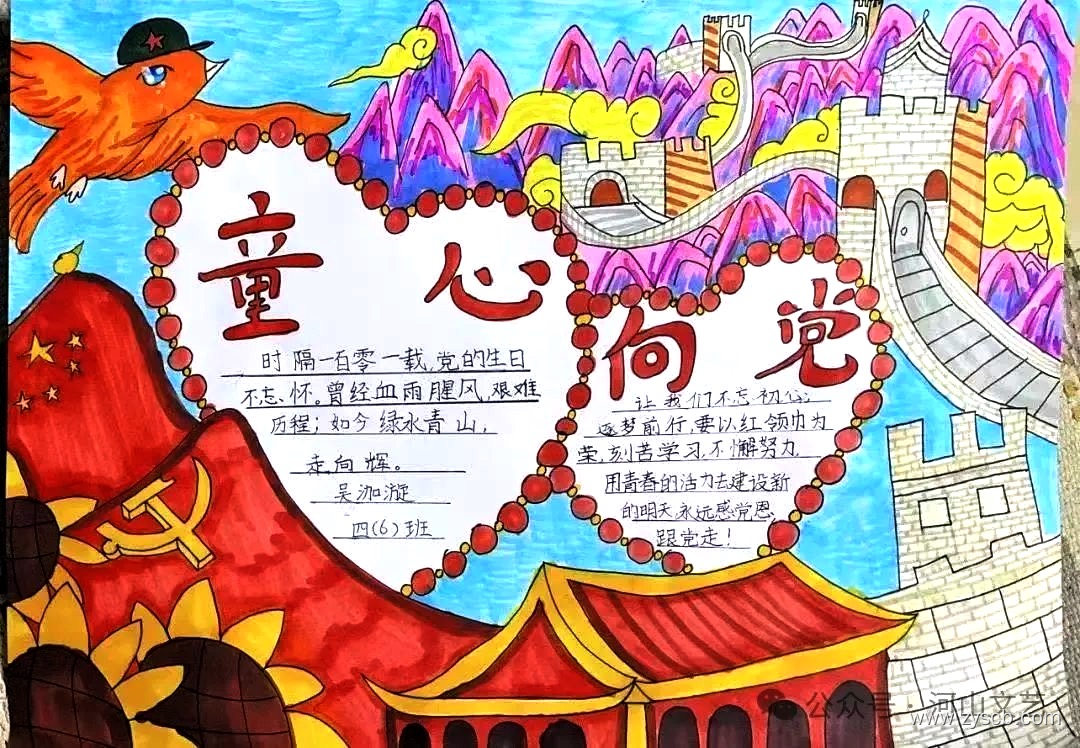 童心
时隔一百零一载,党的生日
不忘、怀。曾经血雨腥风,艰难
历程；如今绿水青山,
走向辉。
吴泇漩
四(6)班
向党
让我们不忘初心;
逐梦前行,要以红领巾为
荣,刻苦学习,不懈努力
用青春的活力去建设新
的明天永远感党恩
跟党走!
公众号·河山文艺
www.zyscb.com